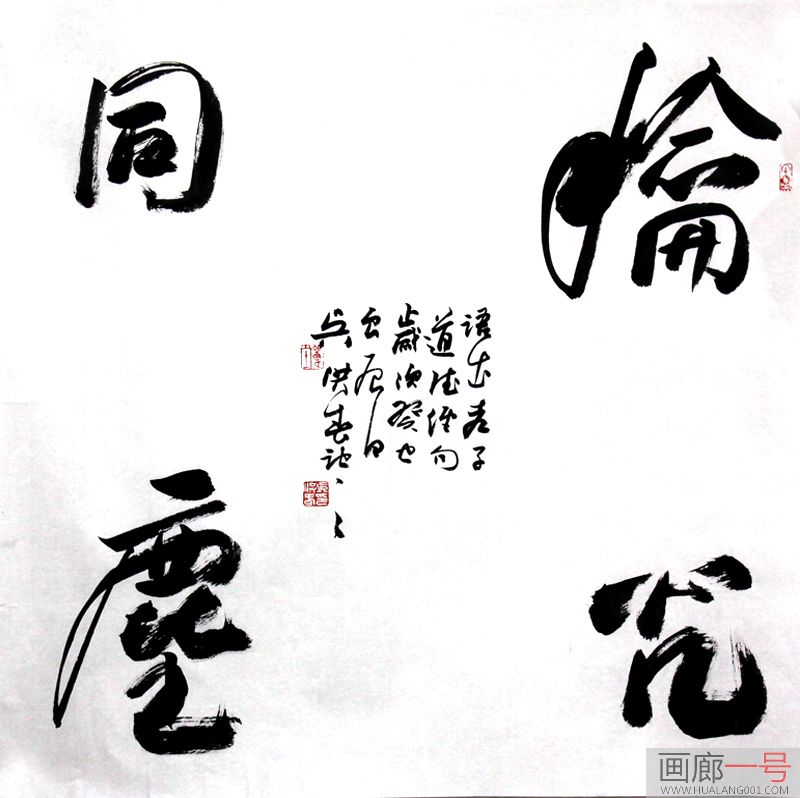 龢光
同塵
語出老子
道德經句
歲次癸巳
吳洪春記
画廊一号
WWW.HUALANG001.COM